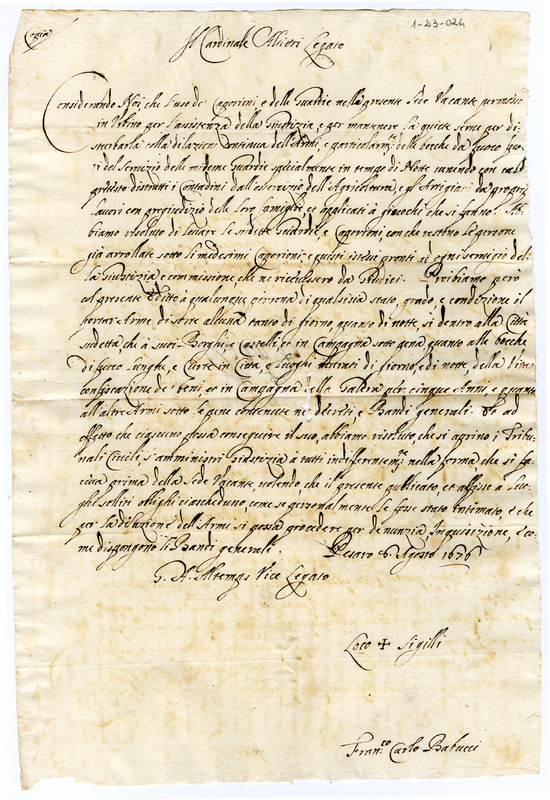 1-23-024
Copia
Il Cardinale Altieri Legato
Considerando Noi che l'uso de' Caporioni, e delle Guardie nella presente Sede Vacante permesso
in Urbino per l'assistenza della Giustizia, e per mantenere la quiete serve per di-
sturbarla colla dilazione continua dell'Armi, e particolarm.te delle bocche da fuoco fuo-
ri del servizio delle medeme Guardie specialmente in tempo di Notte venendo con tal
pretesto distratti i Contadini dall'esercizio dell'Agricoltura, e gl'Artigiani da proprij
lavori con pregiudizio delle loro famiglie, et applicati à giochi che si fanno. Ab-
biamo risoluto di levare le sudette Guardie, e Caporioni, con che restino le persone
già arrollate sotto li medesimi Caporioni, e questi istessi pronti ad ogni servigio del-
la Giustizia, e commissione, che ne ricevessero da Giudici. Proibiamo però
col presente Editto à qualunque persona di qualsisia stato, grado, e condizione il
portar Arme di sorte alcuna tanto di giorno, quanto di notte, si dentro alla Città
sudetta, che à suoi Borghi, e Castelli, et in Campagna sotto pena quanto alle bocche
di fuoco lunghe, e curte in Città, e luoghi murati di giorno, e di notte, della Vita
confiscazione de' beni, et in Campagna della Galera per cinque Anni, e quanto
all'altre Armi sotto le pene contenute ne' decreti, e Bandi generali. Et ad
effetto che ciascuno possa conseguire il suo, abbiamo risoluto, che si aprino i Tribu-
nali Civili, e s'amministri Giustizia à tutti indifferentem.te nella forma che si fa-
ceva prima della Sede Vacante volendo, che il presente publicato, et affisso a' luo-
ghi soliti oblighi ciascheduno, come se personalmente le fosse stato intimato, e che
per la dilazione dell'Armi si possa procedere per denunzia, Inquisizione, e co-
me dispongono li Bandi generali. Pesaro 6 Agosto 1676
G. A. Altemps Vice Legato
Loco + Sigilli
Fran.co Carlo Babucci